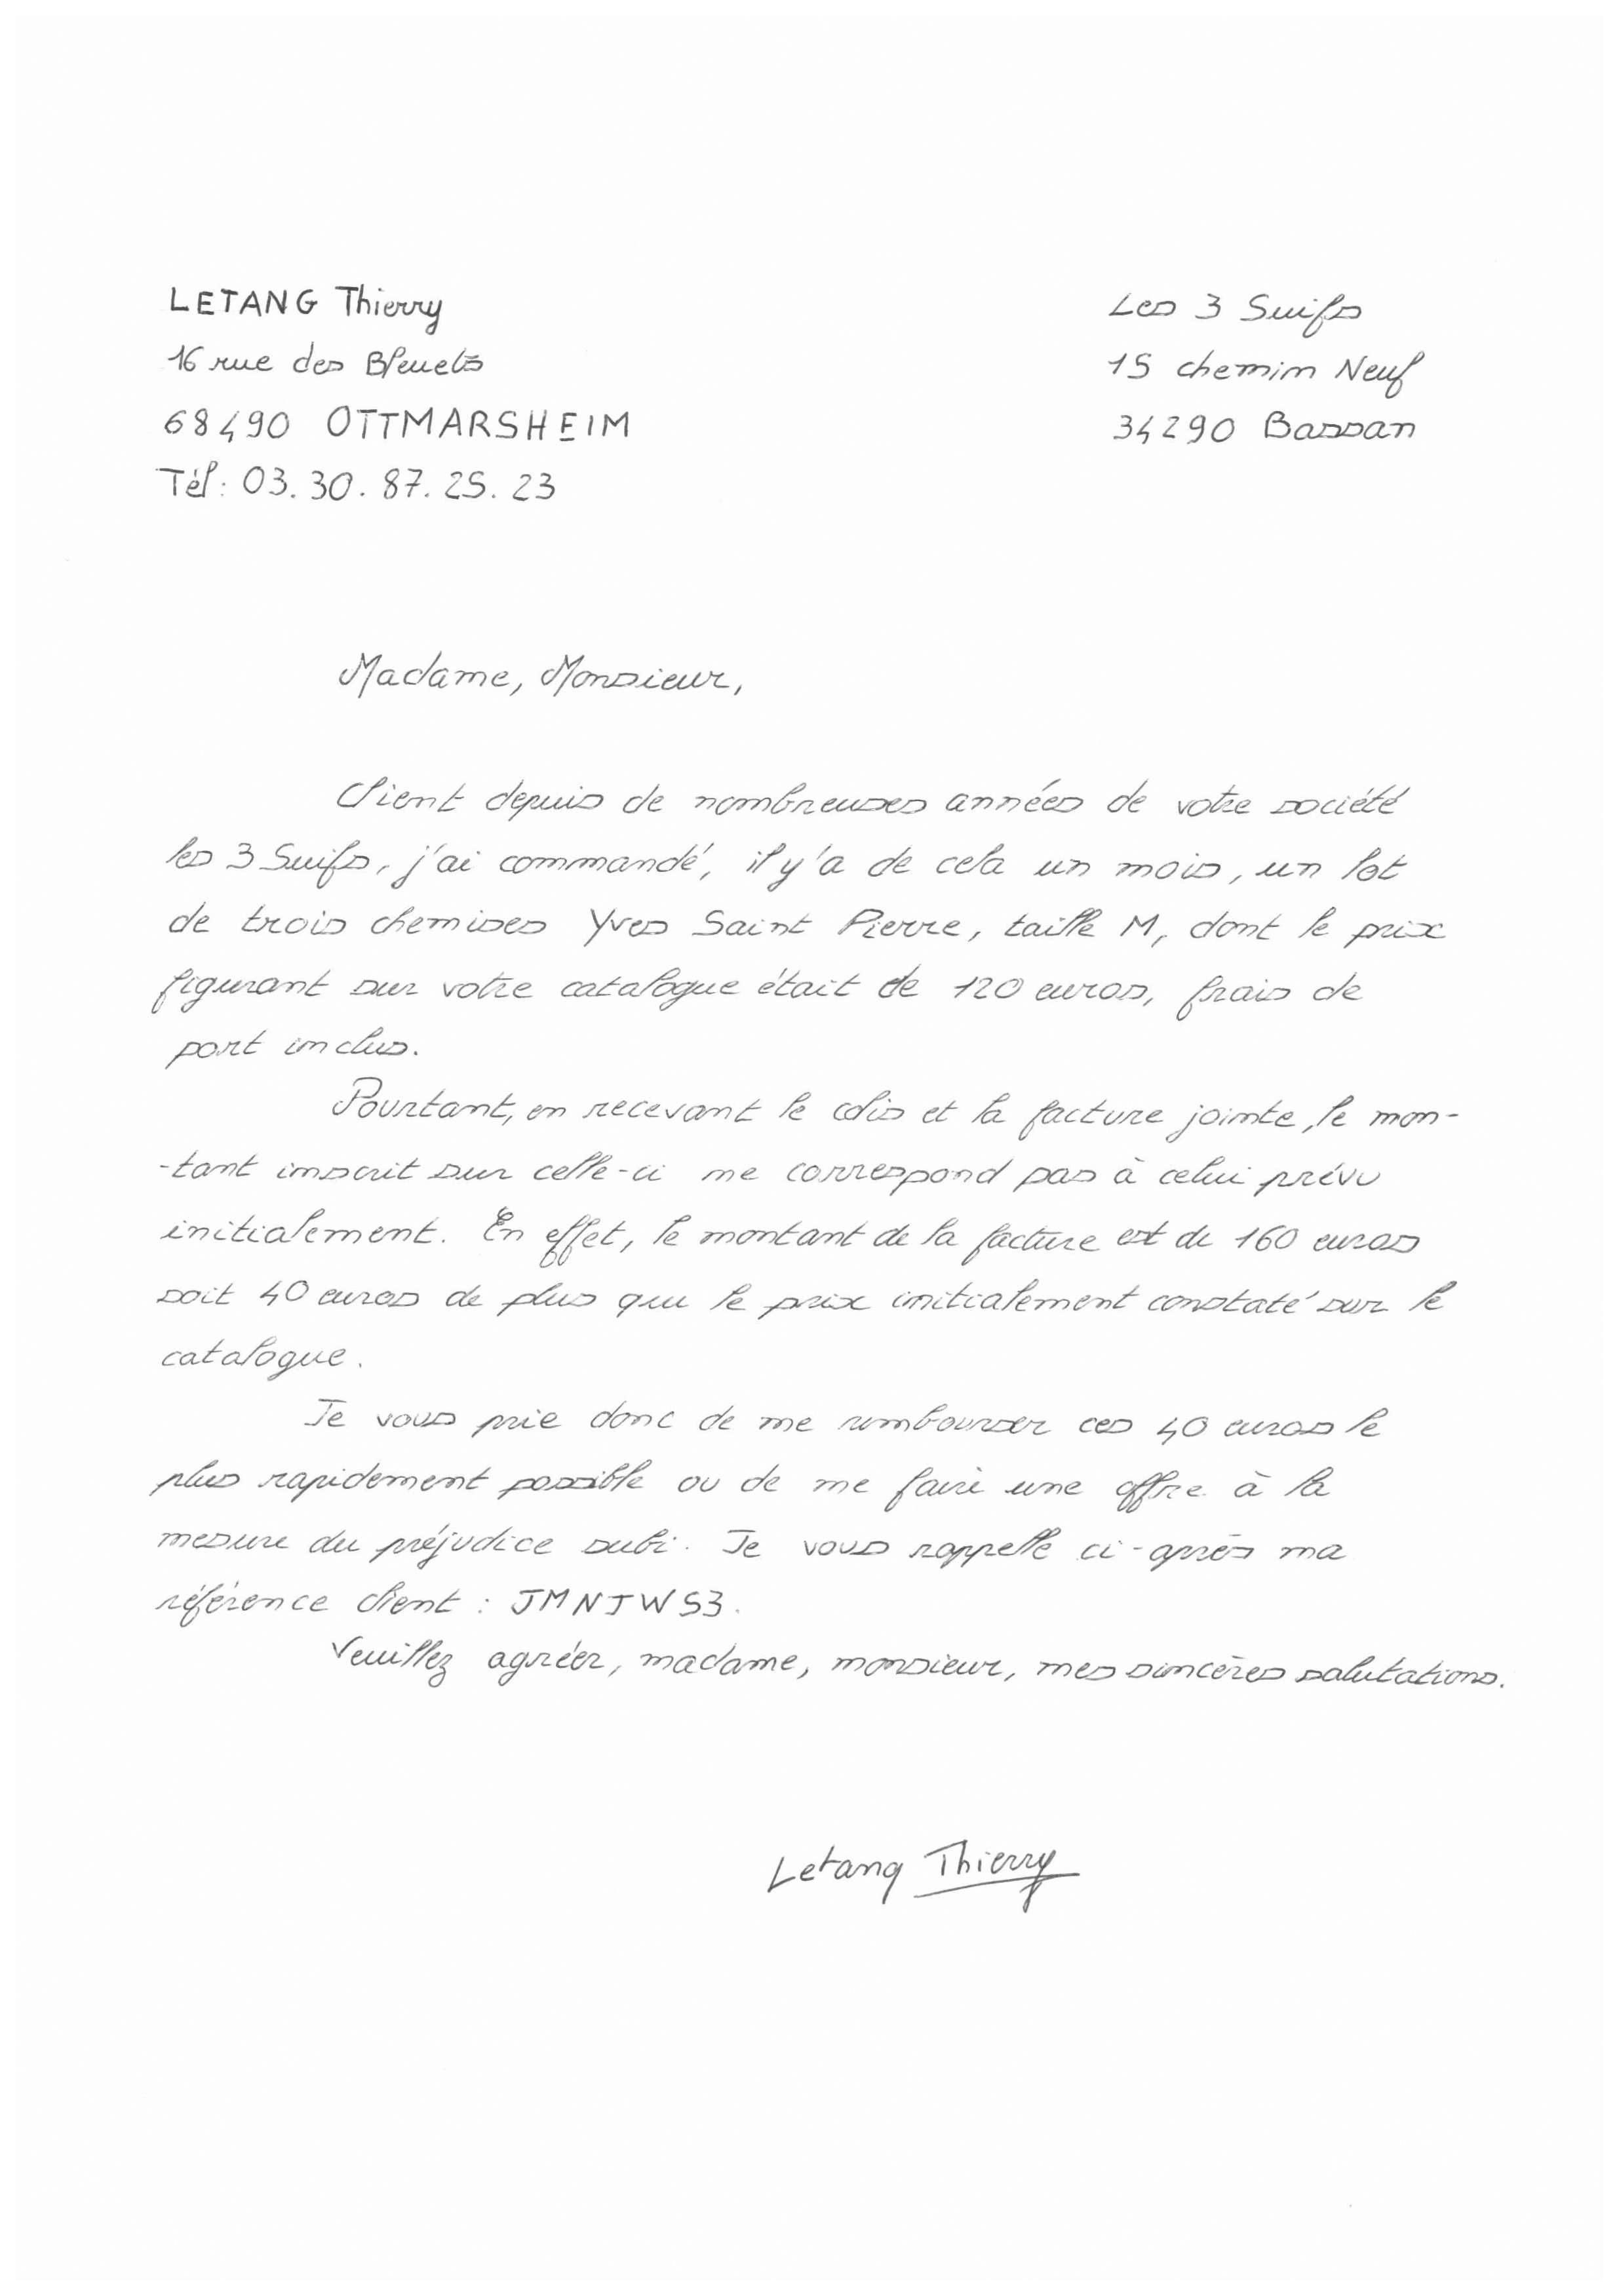 LETANG Thierry
16 rue des Bleuets
68490 OTTMARSHEIM
Tél : 03.30.87.25.23
Les 3 Suifs
15 chemin Neuf
34290 Bassan
Madame, Monsieur,
Client depuis de nombreuses années de votre société
les 3 Suifs, j'ai commandé, il y'a de cela un mois, un lot
de trois chemises Yves Saint Pierre, taille M, dont le prix
figurant sur votre catalogue était de 120 euros, frais de
port inclus.
Pourtant, en recevant le colis et la facture jointe, le mon-
-tant inscrit sur celle-ci ne correspond pas à celui prévu
initialement. En effet, le montant de la facture est de 160 euros
soit 40 euros de plus que le prix initialement constaté sur le
catalogue.
Je vous prie donc de me rembourser ces 40 euros le
plus rapidement possible ou de me faire une offre à la
mesure du préjudice subi. Je vous rappelle ci-après ma
référence client : JMNJWS3.
Veuillez agréer, madame, monsieur, mes sincères salutations.
Letang Thierry